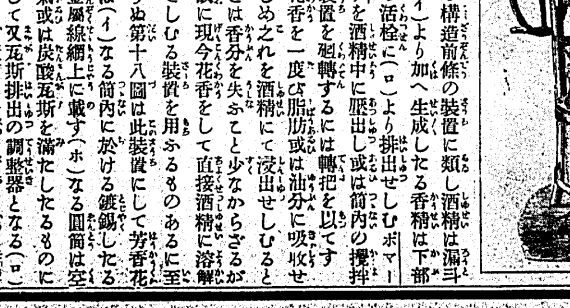 構造前條の裝置に類し酒精は漏斗
イ)より加へ生成したる香精は下部
活栓に(ロ)より排出せしむポマー
を酒精中に壓出し或は筒內の攪拌
裝置を廻轉するには轉把を以てす
花香を一度び脂肪或は油分に吸收せ
しめ之れを酒精にて浸出せしむると
は香分を失ふこと少なからざるが
に現今花香をして直接酒精に溶解
せしむる裝置を用ふるものあるに至
ぬ第十八圖は此裝置にして芳香花
(イ)なる筒內に於ける鍍錫したる
金屬線網上に載す(ホ)なる圓筒は空
氣或は炭酸瓦斯を滿たしたるものに
して又瓦斯排出の調整器となる(ロ)